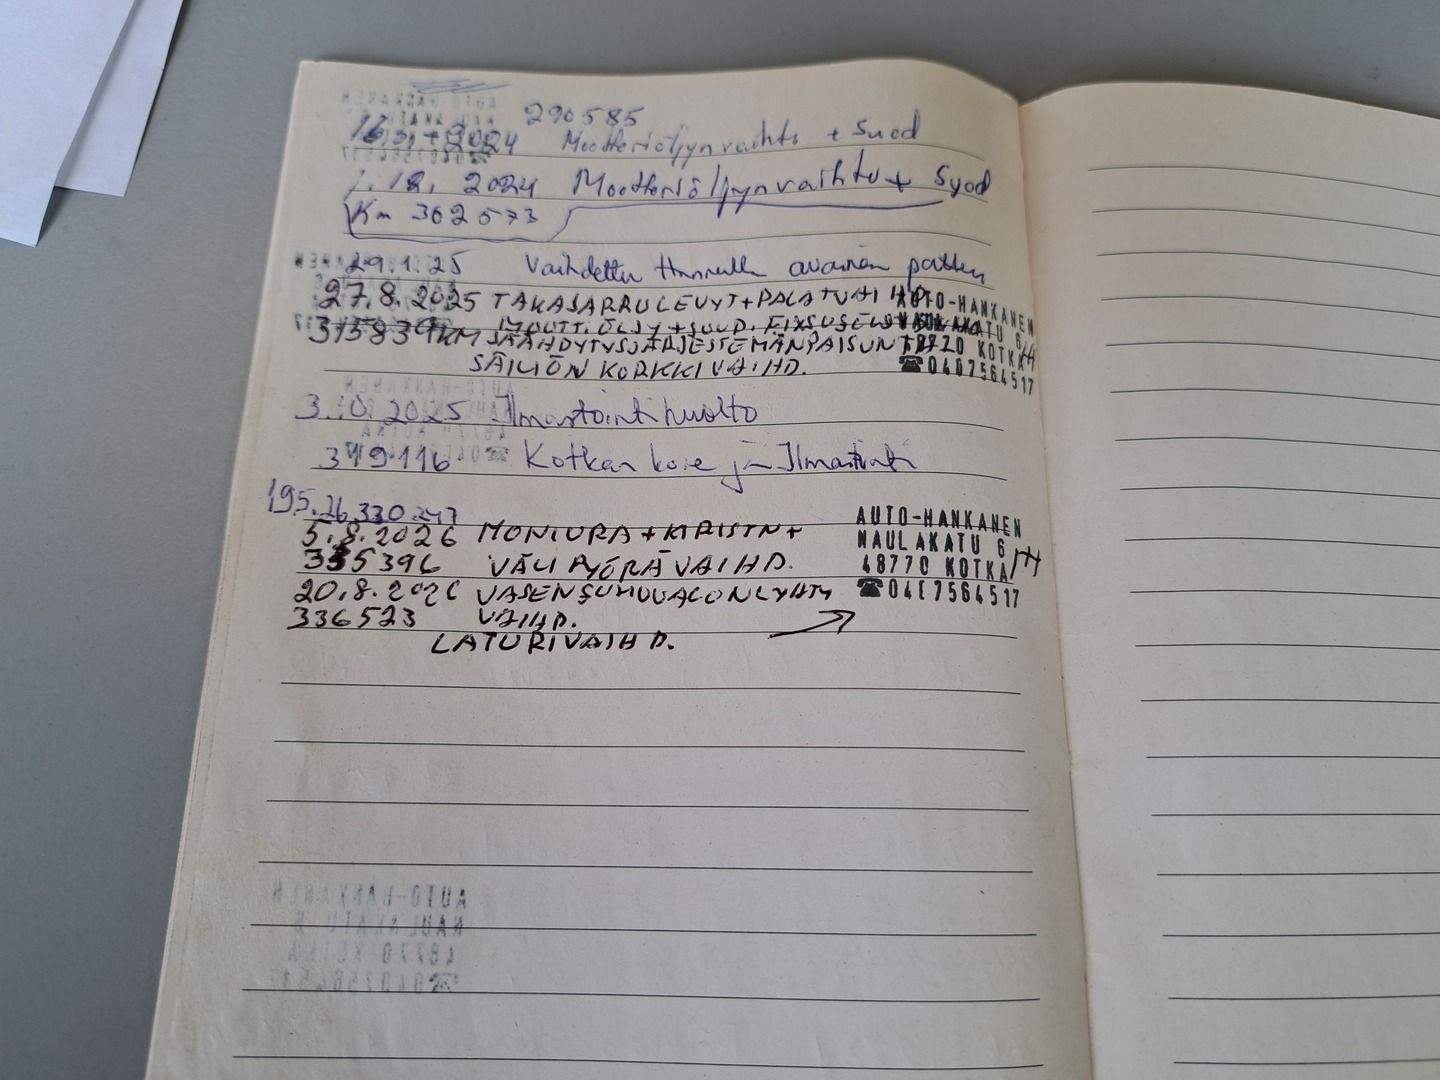 290585
2024 Moottoriöljynvaihto + Suod
1.12. 2024 Moottoriöljynvaihto + Syod
Km 302573
29.1.25 Vaihdettu avaimen
27.8.2025 TAKAJARRULEVYT + PALAT VAIHD.
MOOTT. ÖLJY + SUOD.
315839KM JÄÄHDYTYSJÄRJESTEMÄN PAISUNTA
SÄILIÖN KORKKI VAIHD.
AUTO-HANKANEN
NAULAKATU 6
48770 KOTKA
☎0407564517
3.10.2025 Ilmastointihuolto
319116 Kotkan kone ja Ilmastointi
195.26 330247
5.8.2026 MONIURA + KIRISTIN +
335396 VÄLIPYÖRÄ VAIHD.
20.8.2026 VASEN SUMUVALON LYHTY
336523 VAIHD.
LATURI VAIHD.
AUTO-HANKANEN
NAULAKATU 6
48770 KOTKA
☎0407564517